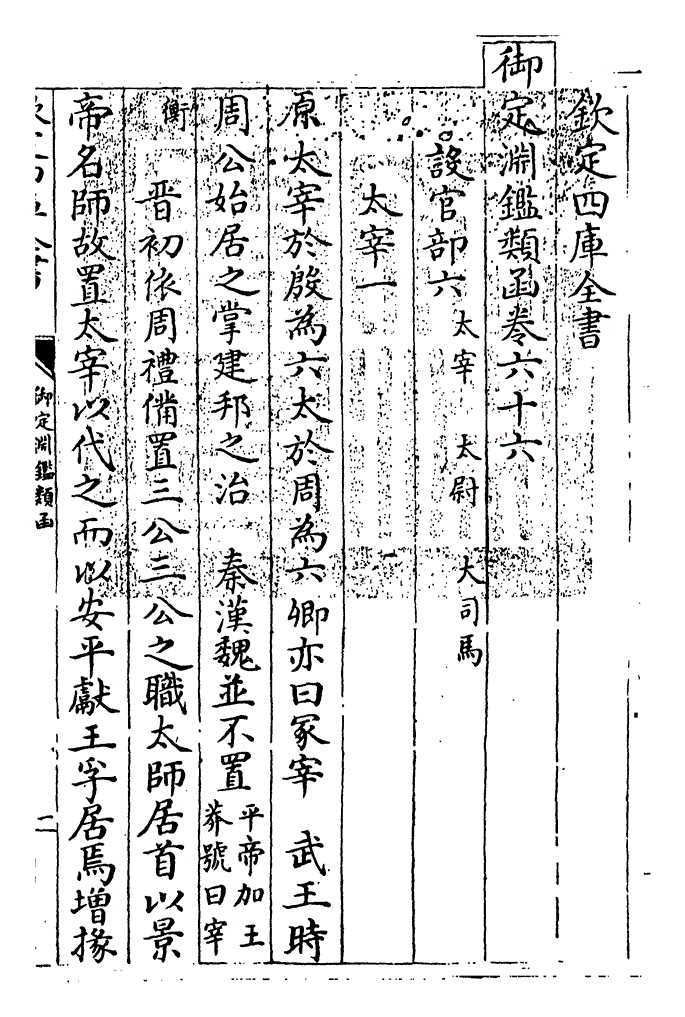 欽定四庫全書
御定淵鑑類函卷六十六
設官部六 太宰 太尉 大司馬
太宰一
原太宰於殷為六太於周為六卿亦曰冢宰 武王時
周公始居之掌建邦之治 秦漢魏並不置 平帝加王莽號曰宰
衡 晋初依周禮備置三公三公之職太師居首以景
帝名師故置太宰以代之而以安平獻王孚居焉增掾
御定淵鑑類函
二